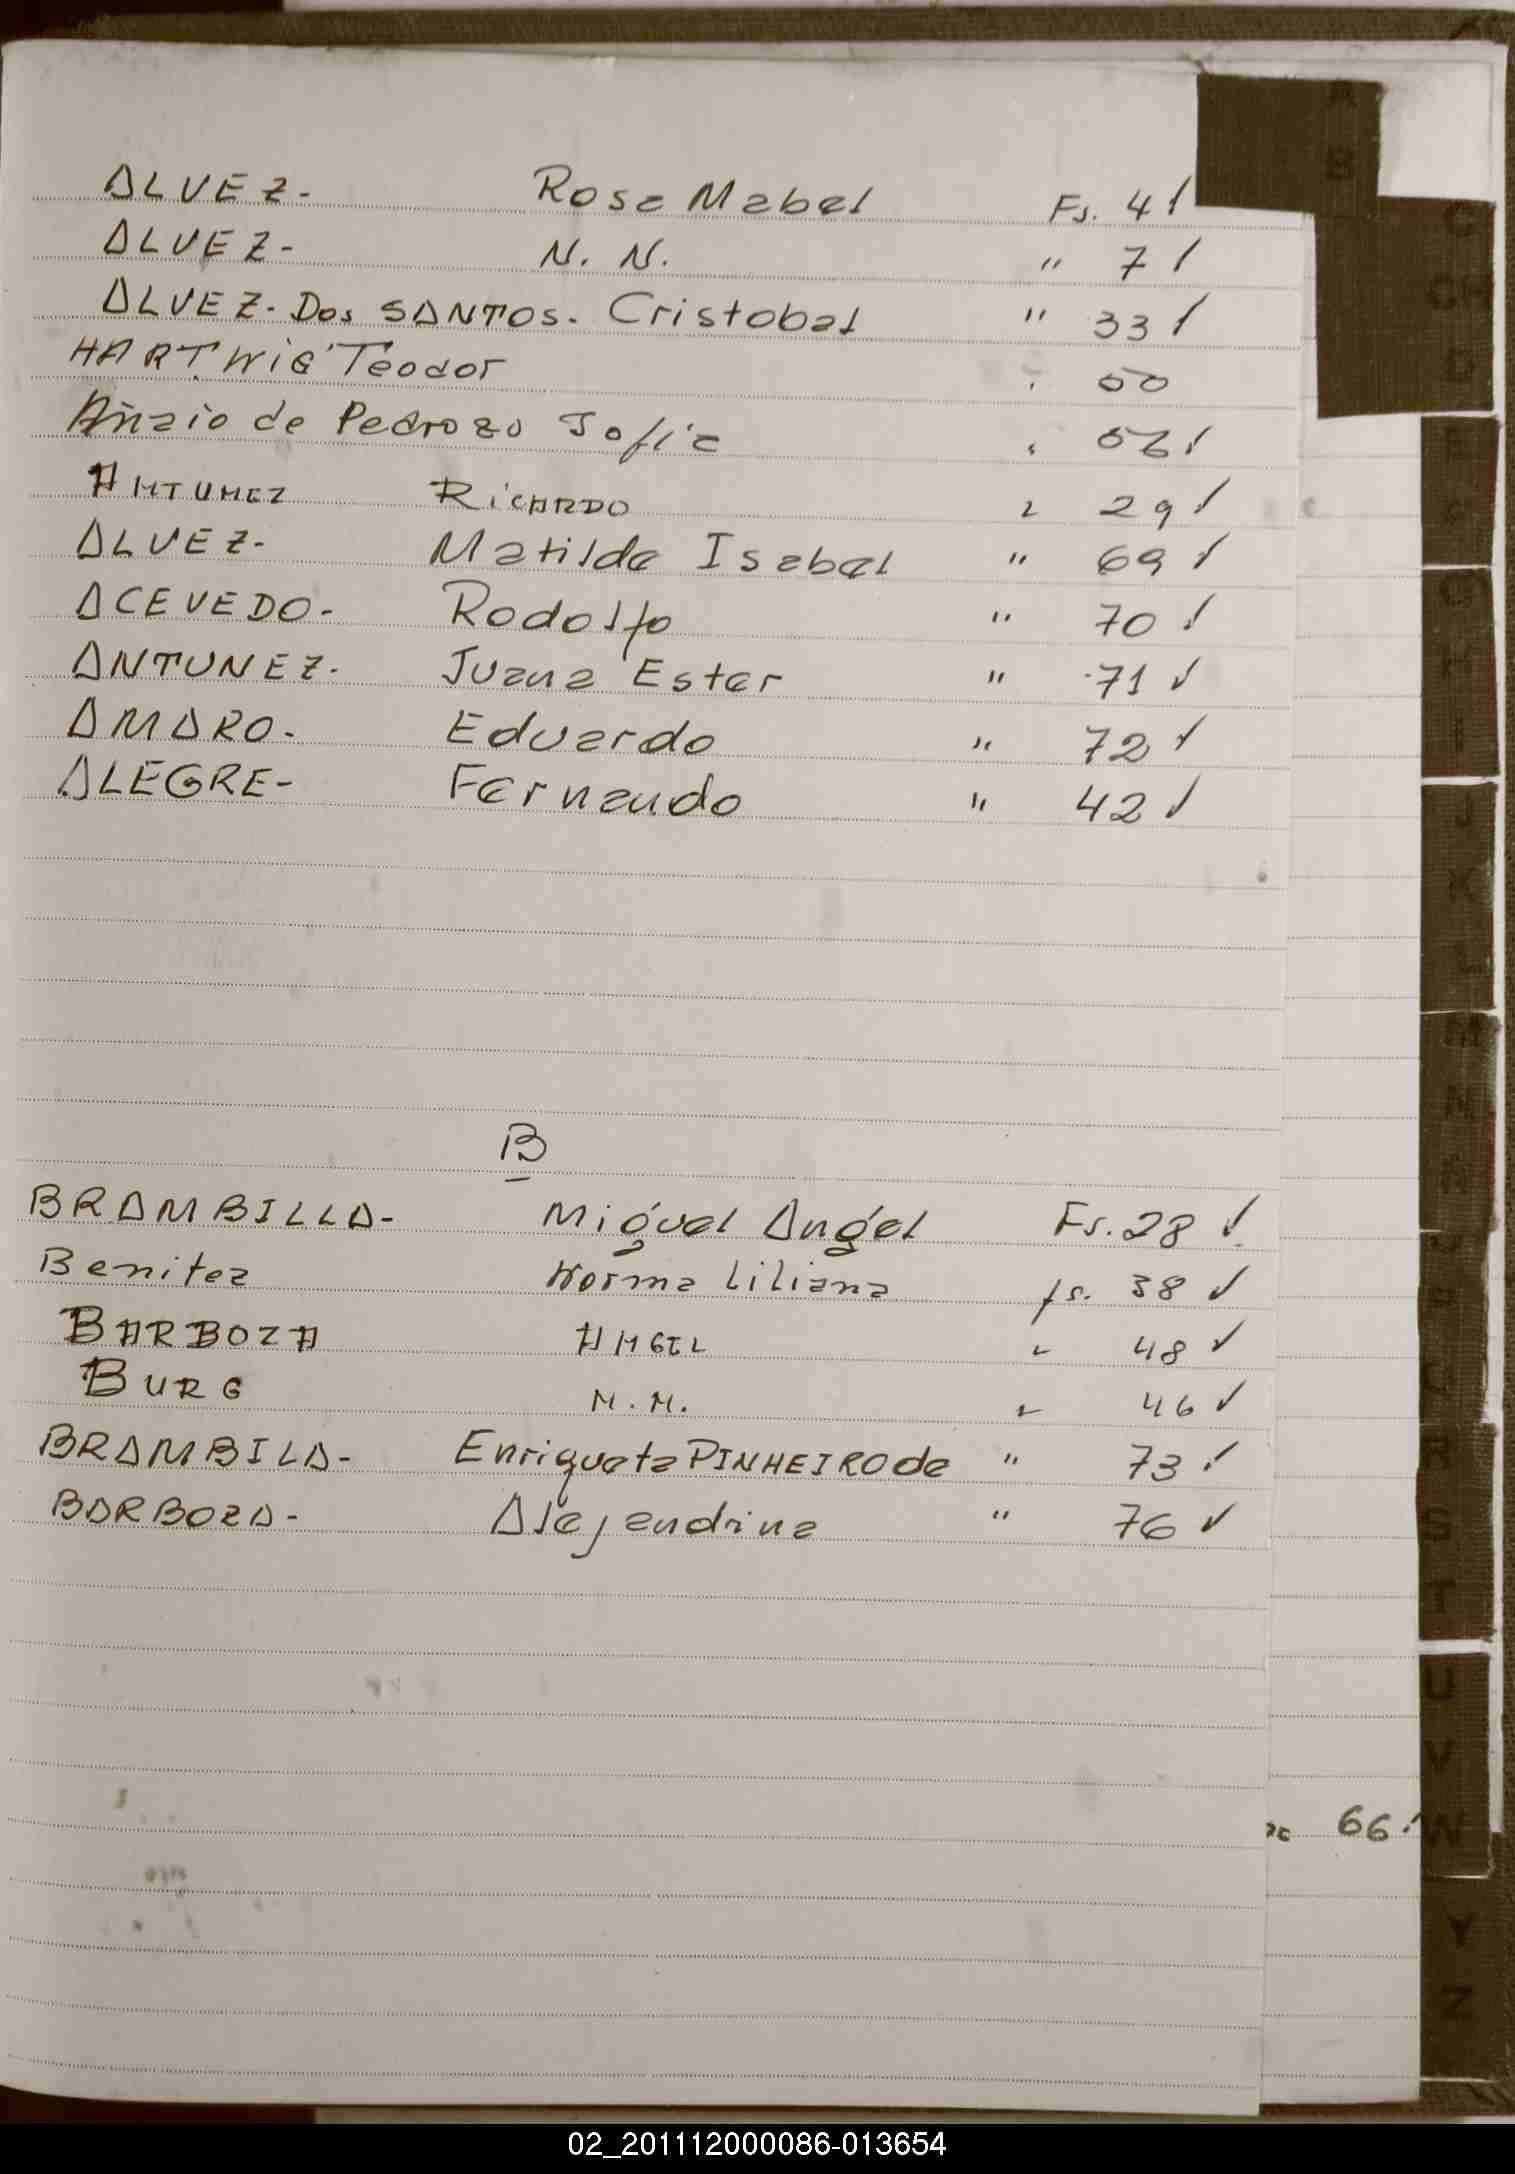 ALVEZ- Rosa Mabel Fs. 4 ✓
ALVEZ- N. N. " 7 ✓
ALVEZ- Dos SANTOS. Cristobal " 33 ✓
HARTWIG Teodor 50
de Pedrozo Sofia ✓
ANTUNEZ RICARDO " 29 ✓
ALVEZ- Matilde Isabel " 69 ✓
ACEVEDO- Rodolfo " 70 ✓
ANTUNEZ- Juana Ester " 71 ✓
AMARO- Eduardo " 72 ✓
ALEGRE- Fernando " 42 ✓
B
BRAMBILLA- Miguel Angel Fs. 28 ✓
Benitez Norma Liliana fs. 38 ✓
BARBOZA ANGEL " 48 ✓
BURG N.N. " 46 ✓
BRAMBILA- Enriqueta PINHEIRO de " 73 ✓
BARBOZA- Alejandrina " 76 ✓
66 ✓
A
B
C
CH
D
F
G
H
I
J
K
L
M
N
S
T
U
V
W
Y
Z
02_201112000086-013654